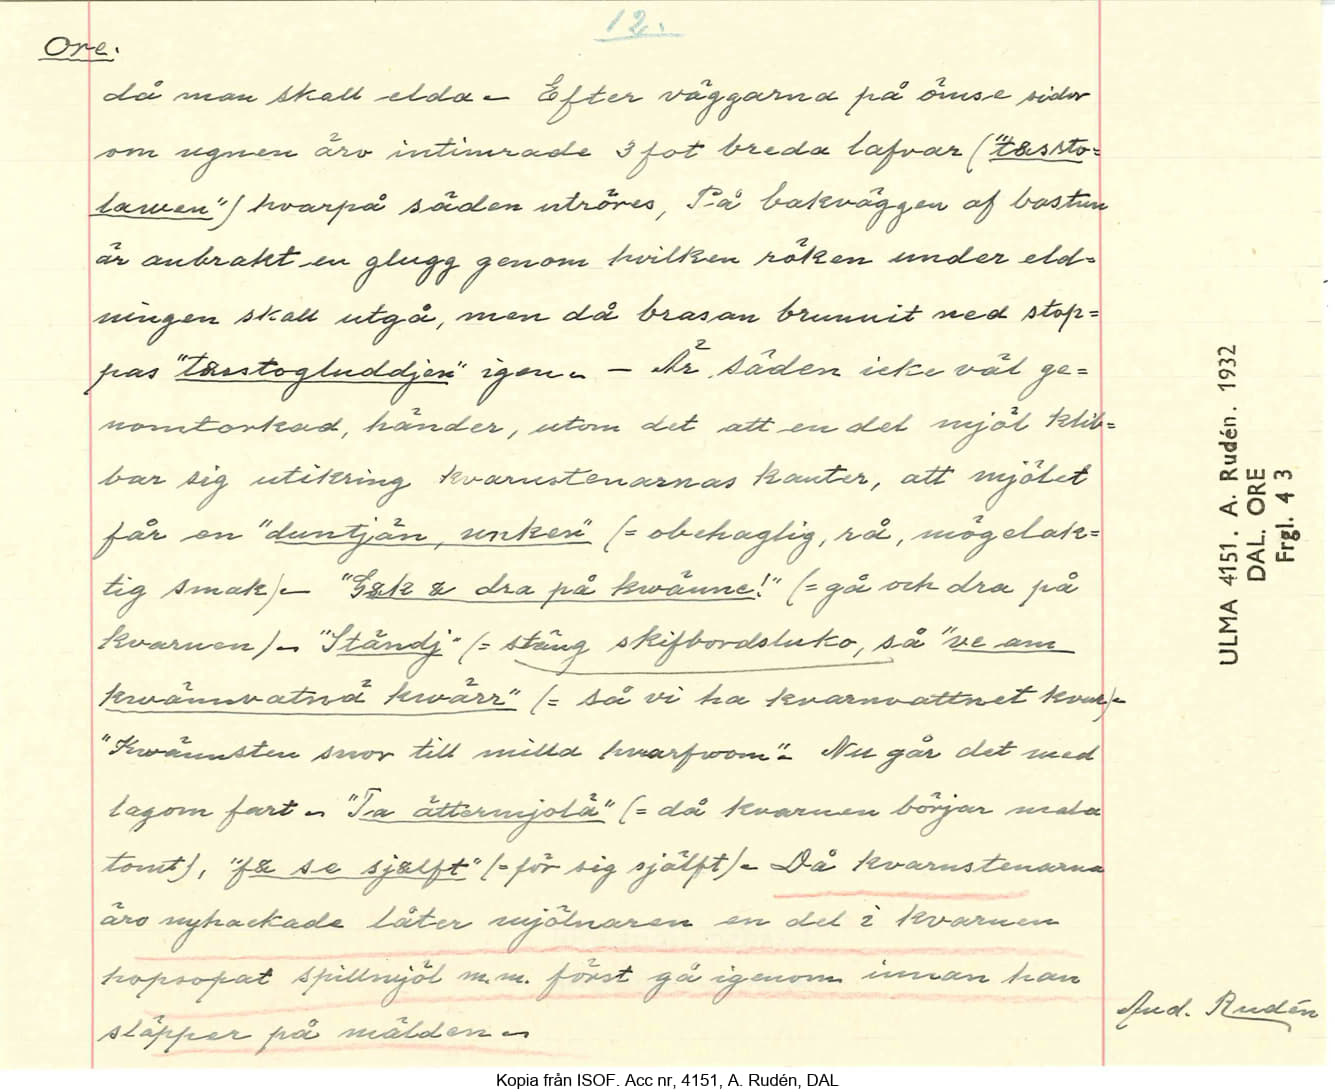 12.
Ore.
då man skall elda. Efter väggarna på ömse sidor
om ugnen äro intimrade 3 fot breda lafvar ("tæssto-
lawen") hvarpå säden utröres, På bakväggen af bastun
är anbrakt en glugg genom hvilken röken under eld-
ningen skall utgå, men då brasan brunnit ned stop-
pas "tæsstogluddjen" igen. — Är säden icke väl ge-
nomtorkad, händer, utom det att en del mjöl klib-
bar sig utikring kvarnstenarnas kanter, att mjölet
får en "duntjän, unken" (= obehaglig, rå, mögelak-
tig smak). "Gæk æ dra på kwänne!" (= gå och dra på
kvarnen). "Ständj" (= stäng skifbordsluko, så "ve am
kwännvatnä kwärr" (= så vi ha kvarnvattnet kvar).
"Kwännsten snor till milla hvarfwom". Nu går det med
lagom fart. "Ta ättermjolä" (= då kvarnen börjar mala
tomt), "fæ se sjælft" (= för sig själft). Då kvarnstenarna
äro nyhackade låter mjölnaren en del i kvarnen
hopsopat spillmjöl m.m. först gå igenom innan han
släpper på mälden.
And. Rudén
ULMA 4151. A. Rudén. 1932
DAL. ORE
Frgl. 43
Kopia från ISOF. Acc nr, 4151, A. Rudén, DAL